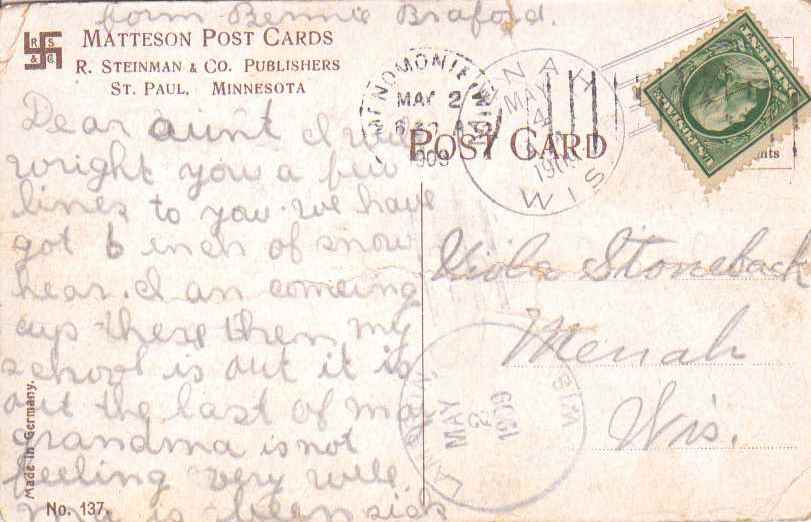 form Bernie Braford.
R S
& C
MATTESON POST CARDS
R. STEINMAN & CO. PUBLISHERS
ST. PAUL, MINNESOTA
MENOMONIE
MAY 2
1909
NENAH
MAY
4
190
WIS
POST CARD
Dear aunt I will
wright you a few
lines to you. we have
got 6 inch of snow
hear. I am comeing
up there then my
school is out it is
out the last of may
grandma is not
feeling very well
is been sick
Viola Stoneback
Menah
Wis.
MAY
2
1909
WIS
Made in Germany.
No. 137.